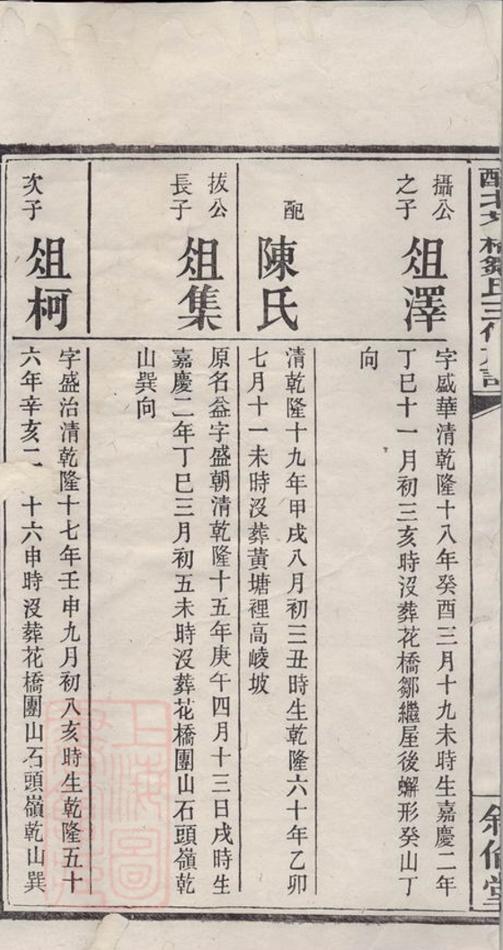 攝公
之子
俎澤
字盛華清乾隆十八年癸酉三月十九未時生嘉慶二年
丁巳十一月初三亥時沒葬花橋鄒繼屋後蠏形癸山丁
向
配
陳氏
清乾隆十九年甲戌八月初三丑時生乾隆六十年乙卯
七月十一未時沒葬黃塘裡高崚坡
拔公
長子
俎集
原名益字盛朝清乾隆十五年庚午四月十三日戌時生
嘉慶二年丁巳三月初五未時沒葬花橋團山石頭嶺乾
山巽向
次子
俎柯
字盛治清乾隆十七年壬申九月初八亥時生乾隆五十
六年辛亥二 十六申時沒葬花橋團山石頭嶺乾山巽
上海圖